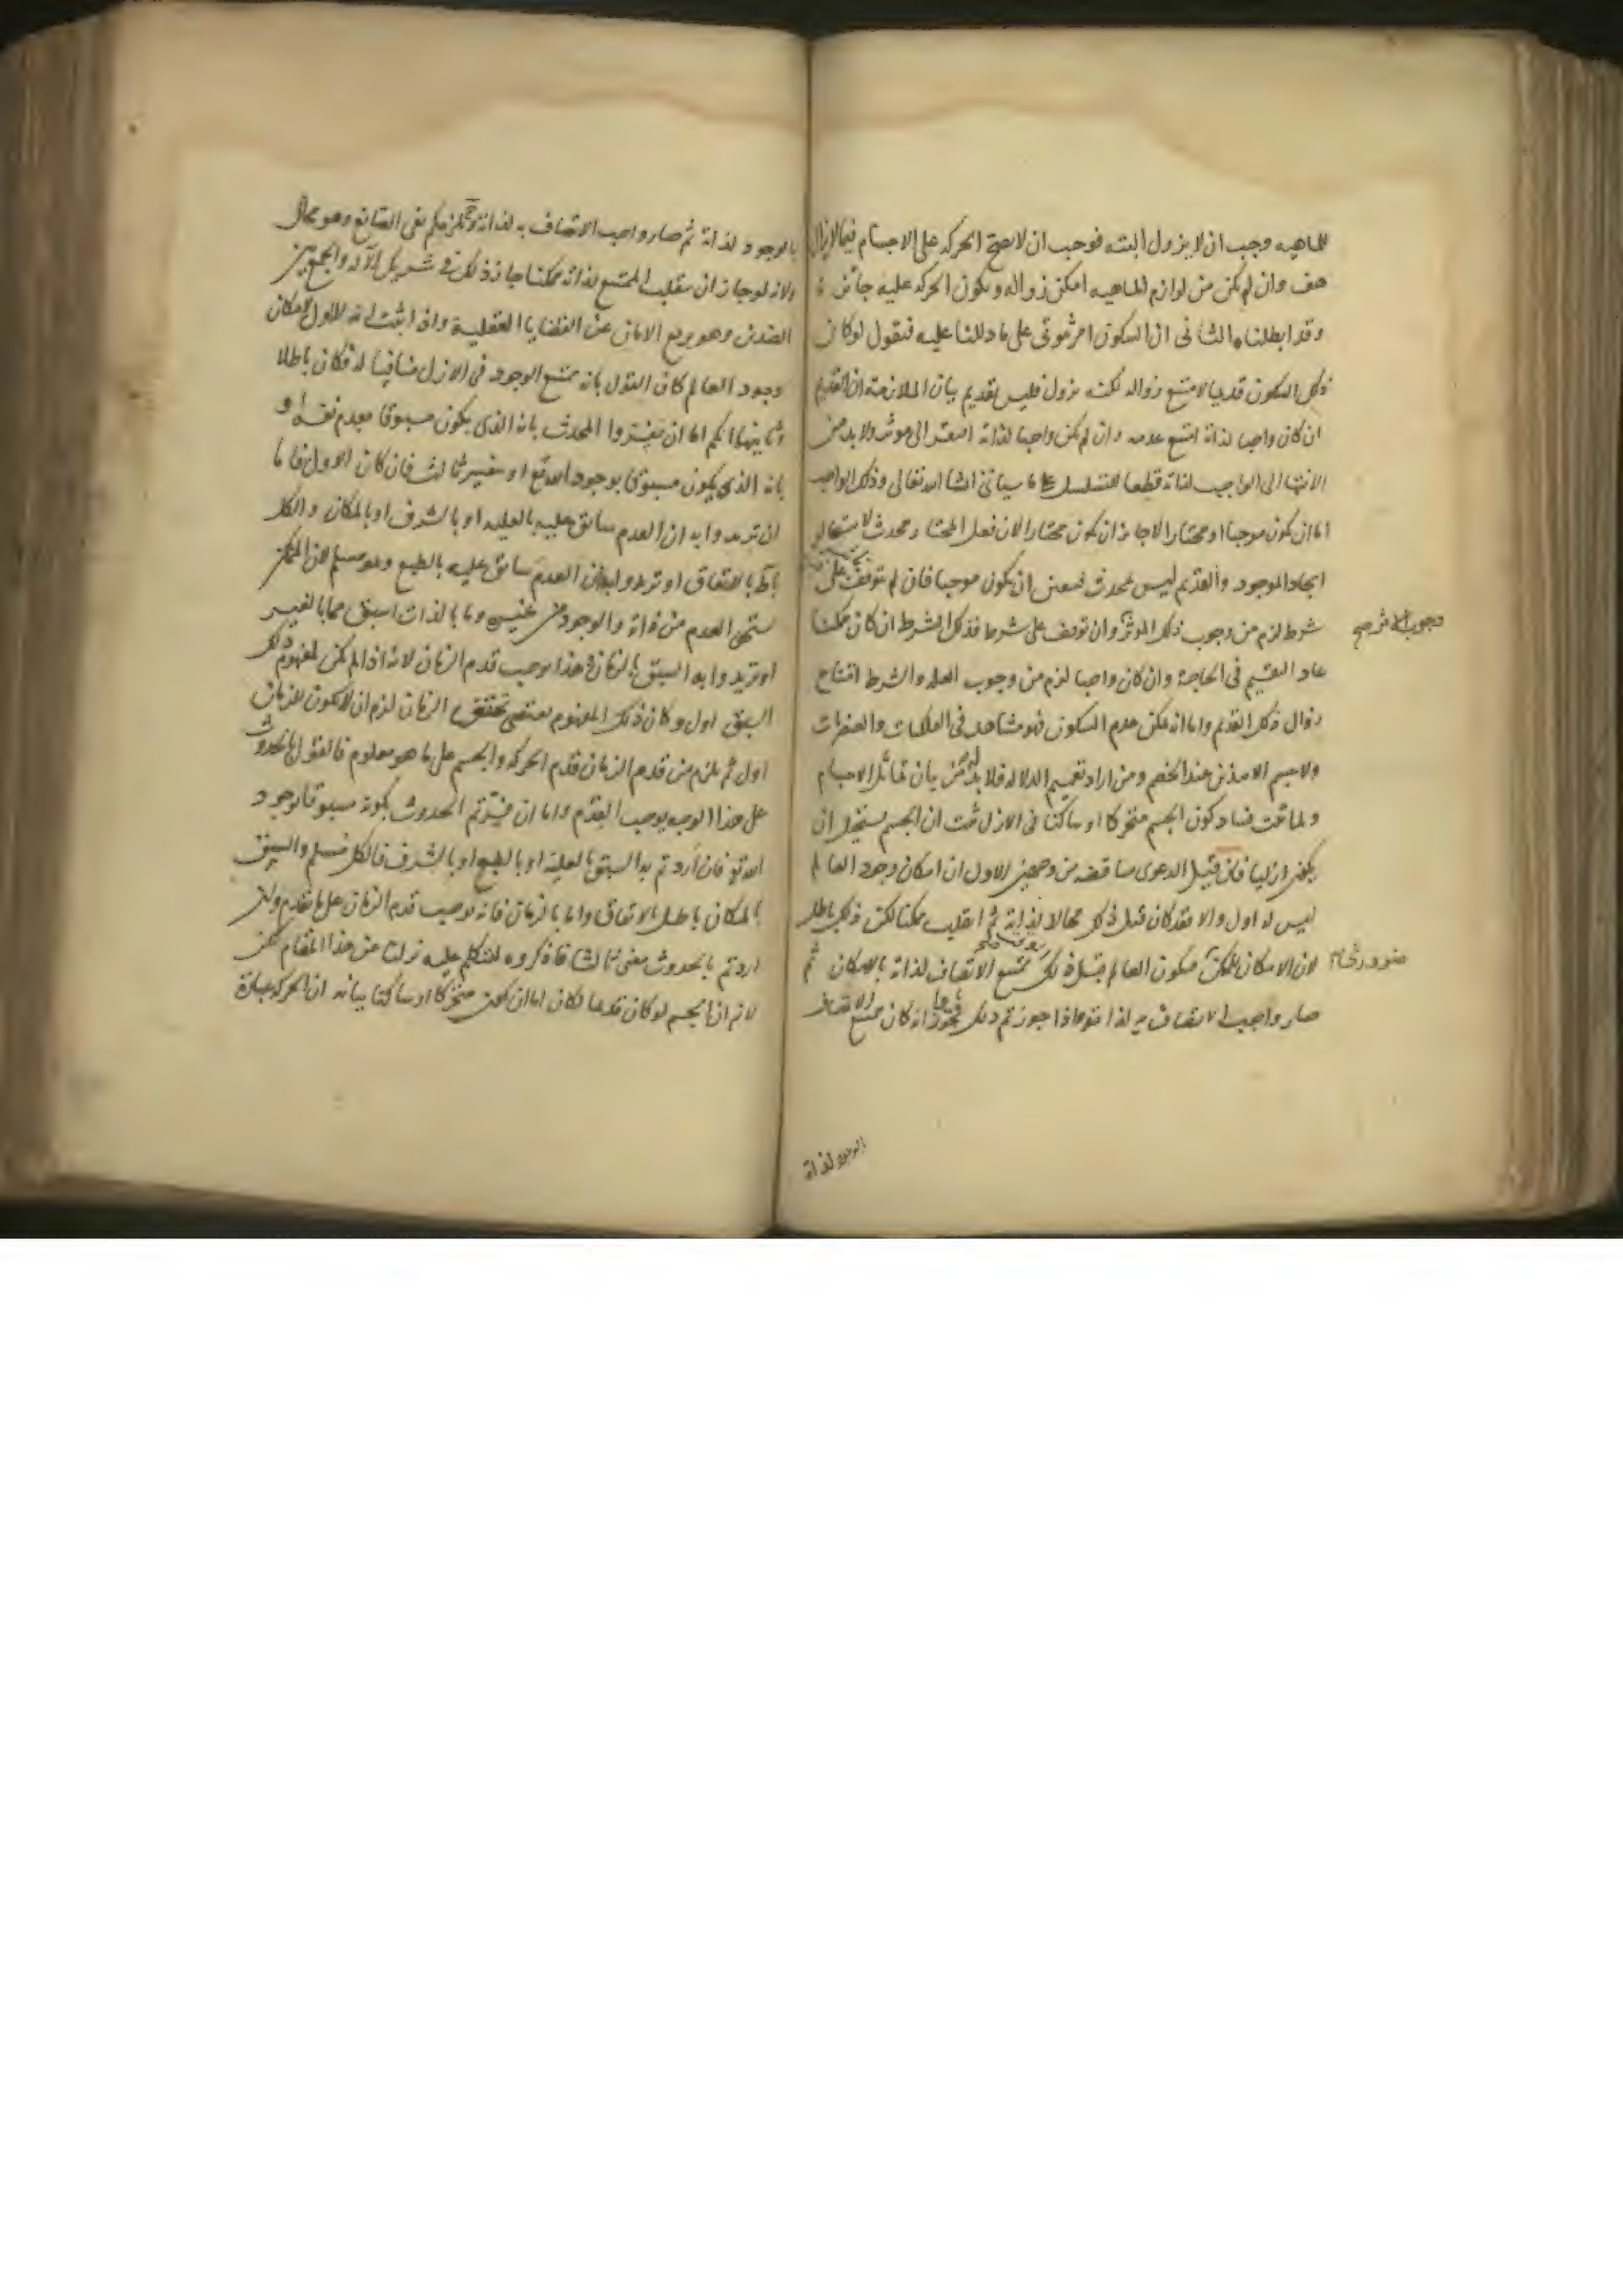 للماهيه وجب ان لا يزول البته فوجب ان لا يصح الحركه على الاجسام فيما لا يزال
هف وان لم يكن من لوازم الماهيه امكن زواله ويكون الحركه عليه جائزة
وقد ابطلناه الثانى ان السكون امر ثبوتى على ما دللنا عليه فنقول لو كان
ذلك السكون قديما لامتنع زواله لكنه يزول فليس بقديم بيان الملازمة ان القديم
ان كان واجبا لذاته امتنع عدمه وان لم يكن واجبا لذاته افتقر الى موثر ولا بد من
الانتها الى الواجب لذاته قطعا للتسلسل على ما سياتى انشا الله تعالى وذلك الواجب
اما ان يكون موجبا او مختارا لا جايز ان يكون مختارا لان فعل المختار محدث لاستحالة
ايجاد الموجود والقديم ليس بمحدث فتعين ان يكون موجبا فان لم يتوقف على
شرط لزم من وجوب ذلك الموثر وان توقف على شرط فذلك الشرط ان كان ممكنا
وجوب الاثر صح
عاد التقسيم فى الحاجة وان كان واجبا لزم من وجوب العله والشرط امتناع
زوال ذلك القديم واما انه يمكن عدم السكون فهو مشاهد فى الفلكيات والعنصريات
ولا جسم الا هذين عند الخصم ومن اراد تعميم الدلاله فلا بد له من بيان تماثل الاجسام
ولما ثبت فساد كون الجسم متحركا او ساكنا فى الازل ثبت ان الجسم يستحيل ان
يكون ازليا فان قيل الدعوى متناقضه من وجهين الاول ان امكان وجود العالم
ليس له اول والا فقد كان قبل ذلك محالا لذاته ثم انقلب ممكنا لكن ذلك باطل
لان الامكان للممكن فيكون العالم قبل ذلك ممتنع الاتصاف لذاته بالامكان ثم
صار واجب الاتصاف به لذاته واذا جوزتم ذلك فجوزوا انه كان ممتنع الاتصاف
الوجود لذاته
بالوجود لذاته ثم صار واجب الاتصاف به لذاته وح يلزمكم نفى الصانع وهو محال
ولانه لو جاز ان ينقلب الممتنع لذاته ممكنا جاز ذلك فى شريك الاله والجمع بين
الضدين وهو يرفع الامان عن القضايا العقلية واذا ثبت انه لا اول لامكان
وجود العالم كان القول بانه ممتنع الوجود فى الازل منافيا له فكان باطلا
وثانيها انكم اما ان تفسروا المحدث بانه الذى يكون مسبوقا بعدم نفسه او
بانه الذى يكون مسبوقا بوجود الله تع او تفسير ثالث فان كان الاول فاما
ان تريدوا به ان العدم سابق عليه بالعليه او بالشرف او بالمكان والكل
باطل بالاتفاق او تريدوا به ان العدم سابق عليه بالطبع وهو مسلم لان الممكن
يستحق العدم من ذاته والوجود من غيره وما بالذات اسبق مما بالغير
او تريدوا به السبق بالزمان وهذا يوجب قدم الزمان لانه اذا لم يكن لمفهوم ذلك
السبق اول وكان ذلك المفهوم يقتضى تحقق الزمان لزم ان لا يكون للزمان
اول ثم يلزم من قدم الزمان قدم الحركه والجسم على ما هو معلوم فالقول بالحدوث
على هذا الوجه يوجب القدم واما ان فسرتم الحدوث بكونه مسبوقا بوجود
الله تع فان اردتم به السبق بالعلية او بالطبع او بالشرف فالكل مسلم والسبق
بالمكان باطل بالاتفاق واما بالزمان فانه يوجب قدم الزمان على ما تقدم وان
اردتم بالحدوث معنى ثالثا فاذكروه لنتكلم عليه نزلنا عن هذا المقام لكن
لانم ان الجسم لو كان قديما لكان اما ان يكون متحركا او ساكنا بيانه ان الحركه عبارة